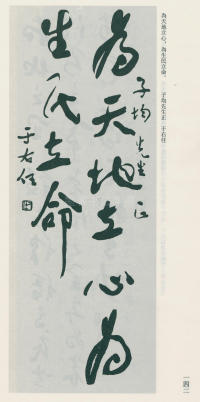 為天地立心、為生民立命。　子均先生正　于右任
子均先生正
為天地立心為
生民立命
于右任
一四二